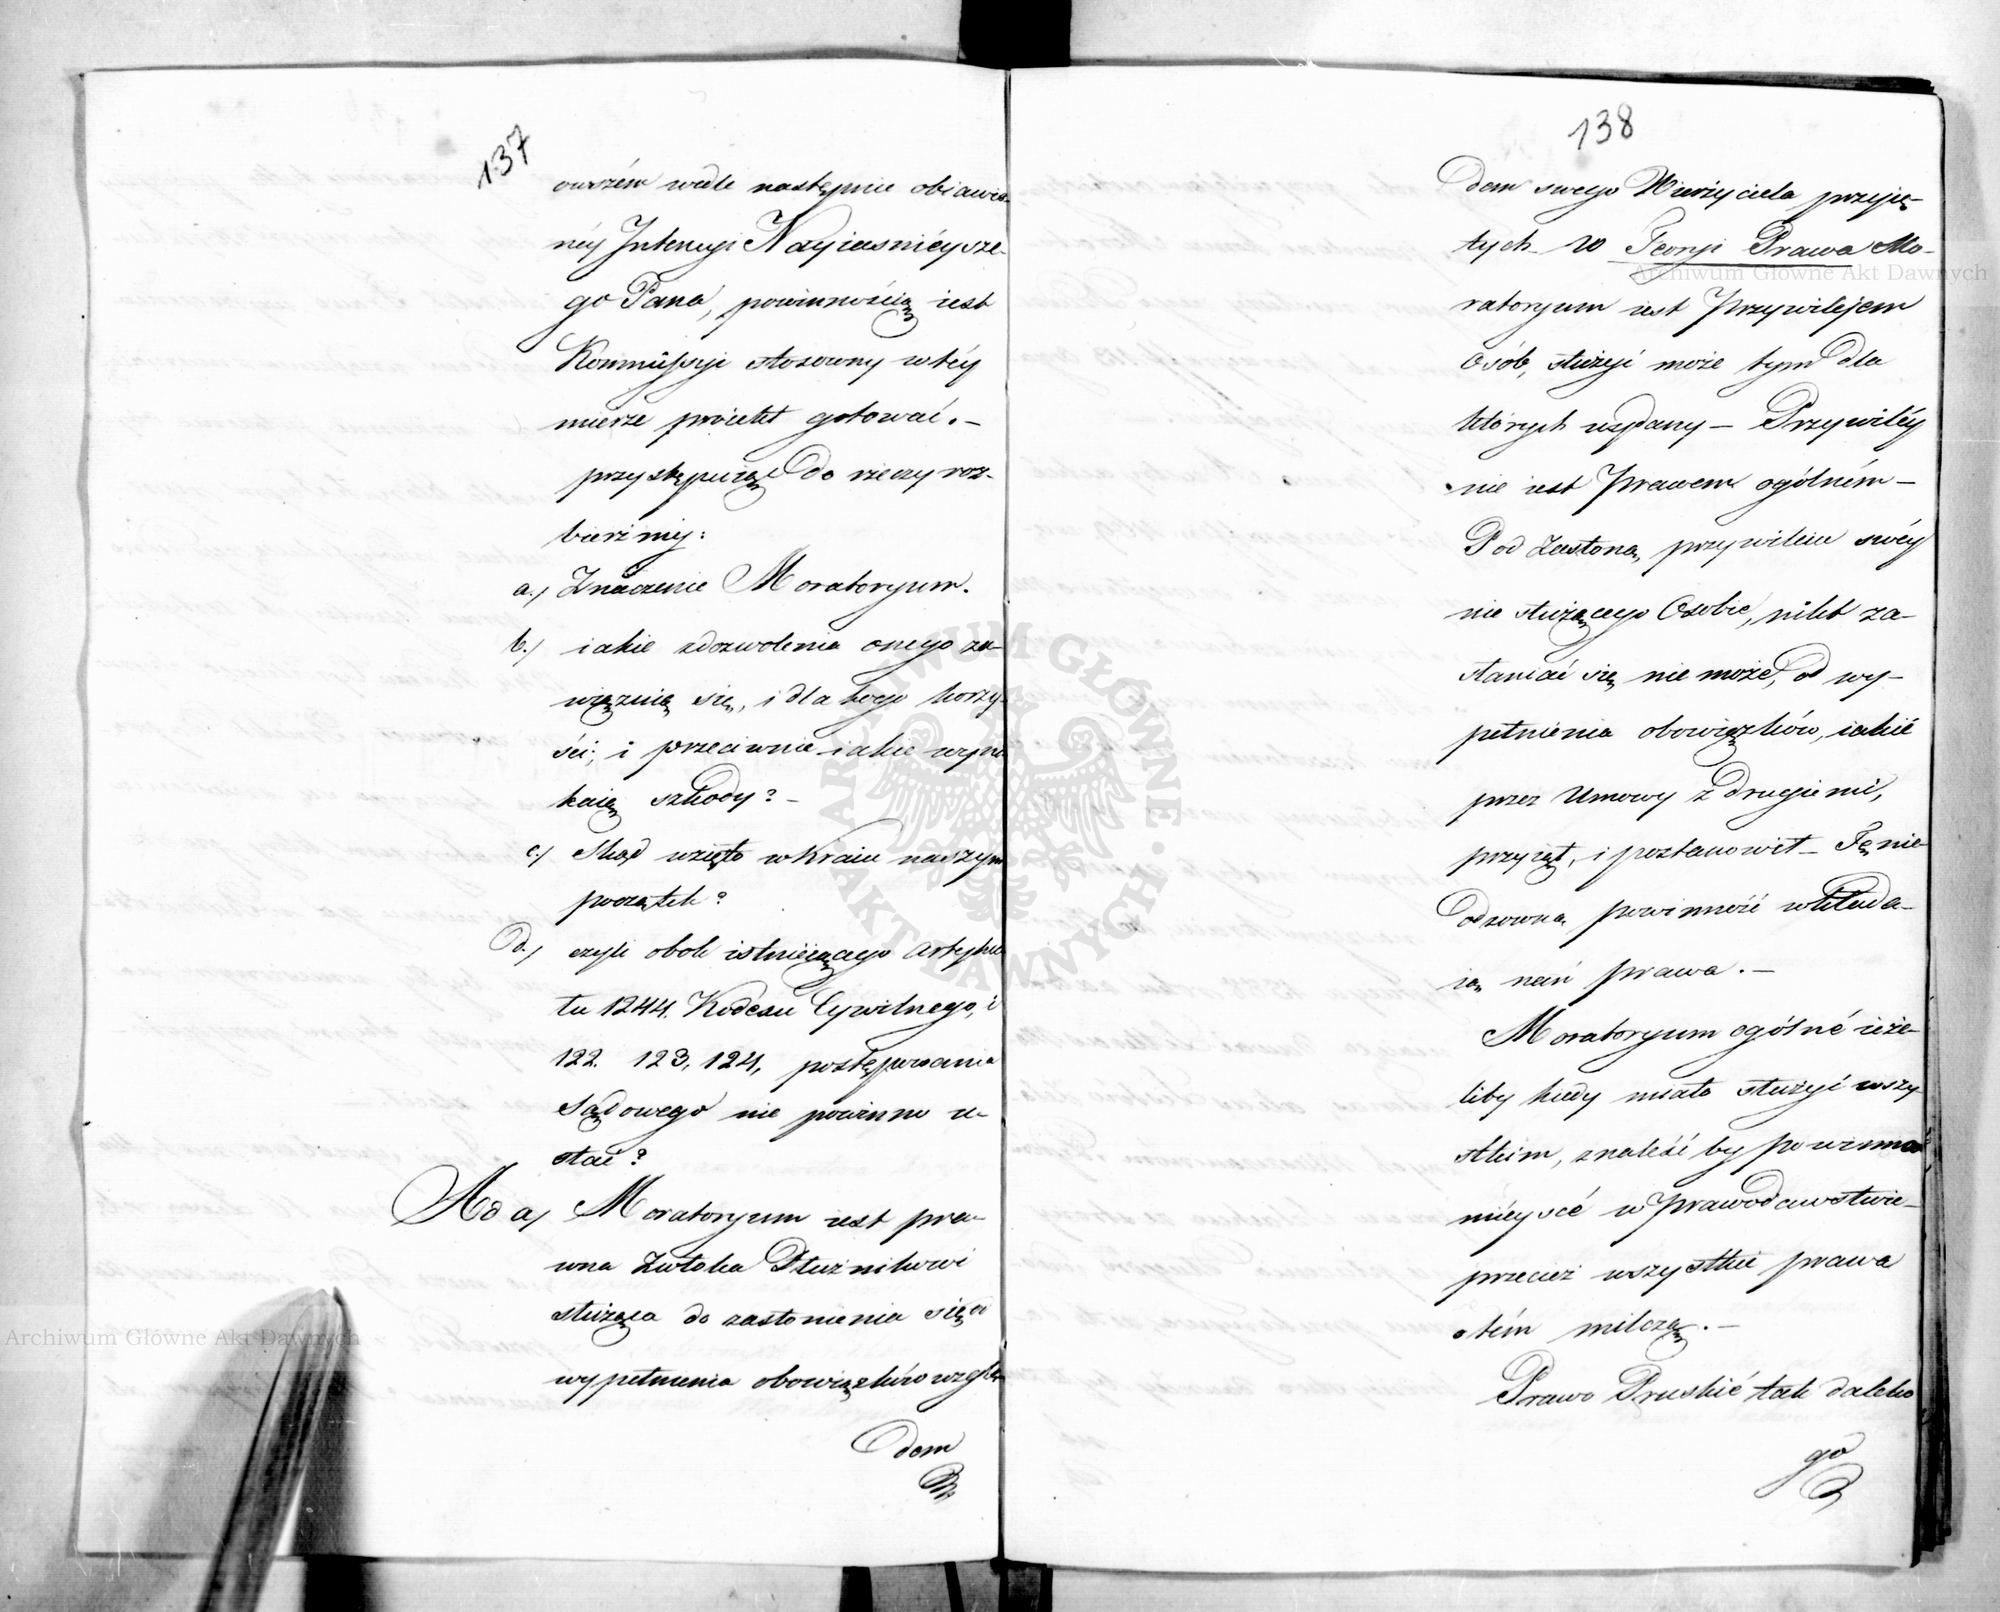 137
owszém wedle następnie obiawio-
néy Intencyi Nayiaśnieysze-
go Pana, powinnością iest
Kommissyi stosowny w téy
mierze proiekt gotować. —
przystępuiąc do rzeczy roz-
bierzmy:
a.) Znaczenie Moratoryum.
b.) iakie zdozwolenia onego za-
wiązuią się, i dla kogo korzy-
ści; i przeciwnie iakie wyni-
kaią szkody? —
c.) Skąd wzięto w Kraiu naszym
początek?
d.) czyli obok istnieiącego artyku-
łu 1244. Kodexu Cywilnego, i
122. 123, 124, postępowania
Sądowego nie powinno u-
stać?
Ad a) Moratoryum iest pra-
wna Zwłoka Dłużnikowi
służąca do zasłonienia się od
wypełnienia obowiązków wzglę-
dem
138
dem swego Wierzyciela przyię-
tych — W Teoryi Prawa Mo-
ratoryum iest Przywilejem
Osób, służyć może tym dla
których wydany — Przywiléy
nie iest Prawem ogólném —
Pod Zasłoną, przywileiu swéy
nie służącego Osobie, nikt za-
słaniać się nie może, od wy-
pełnienia obowiązków, iakié
przez Umowy z drugiemi,
przyiął, i postanowił — Tę nie-
odzowną powinność wkłada-
ią nań prawa. —
Moratoryum ogólné ieże-
liby kiedy miało służyć wszy-
stkim, znaleść by powinno
mieyscé w Prawodawstwie —
przecież wszystkie prawa
o tém milczą. —
Prawo Pruskié tak daleko
go
ARCHIWUM GŁÓWNE AKT DAWNYCH
Archiwum Główne Akt Dawnych
Archiwum Główne Akt Dawnych